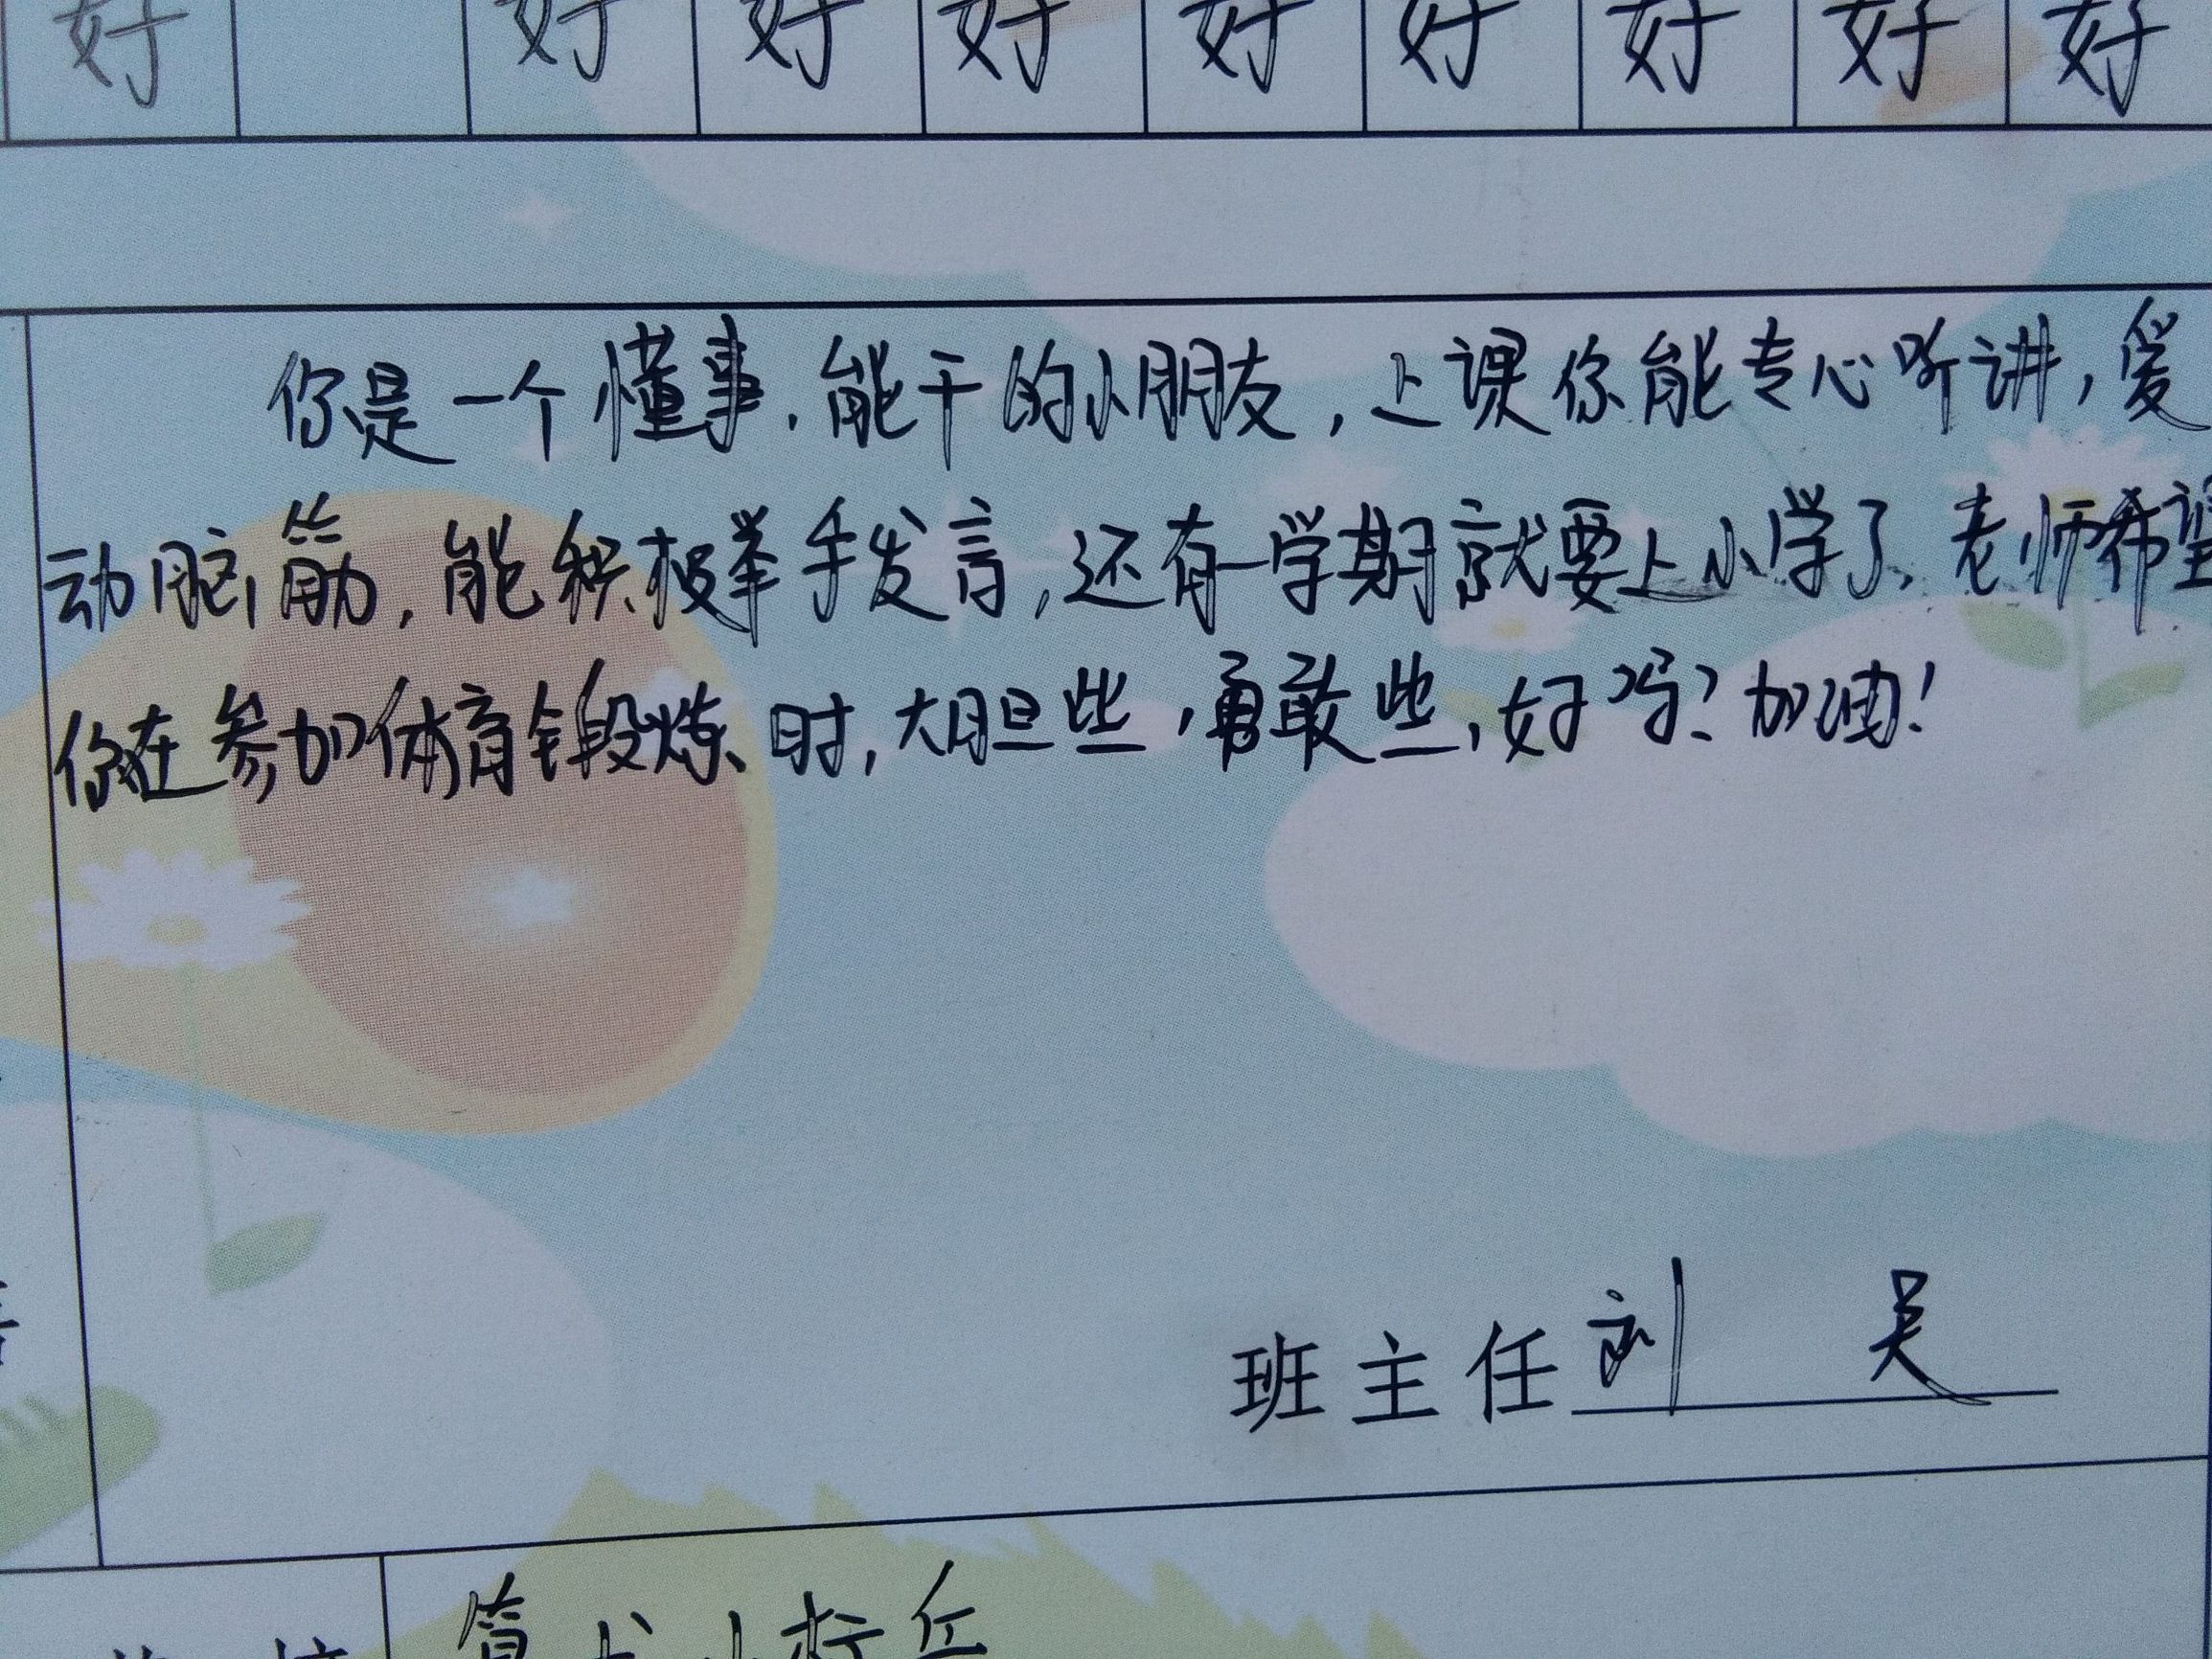 好 好 好 好 好 好 好 好 好
你是一个懂事、能干的小朋友，上课你能专心听讲，爱
动脑筋，能积极举手发言，还有一学期就要上小学了，老师希望
你在参加体育锻炼时，大胆些，勇敢些，好吗？加油！
班主任 刘 吴
算术小标兵